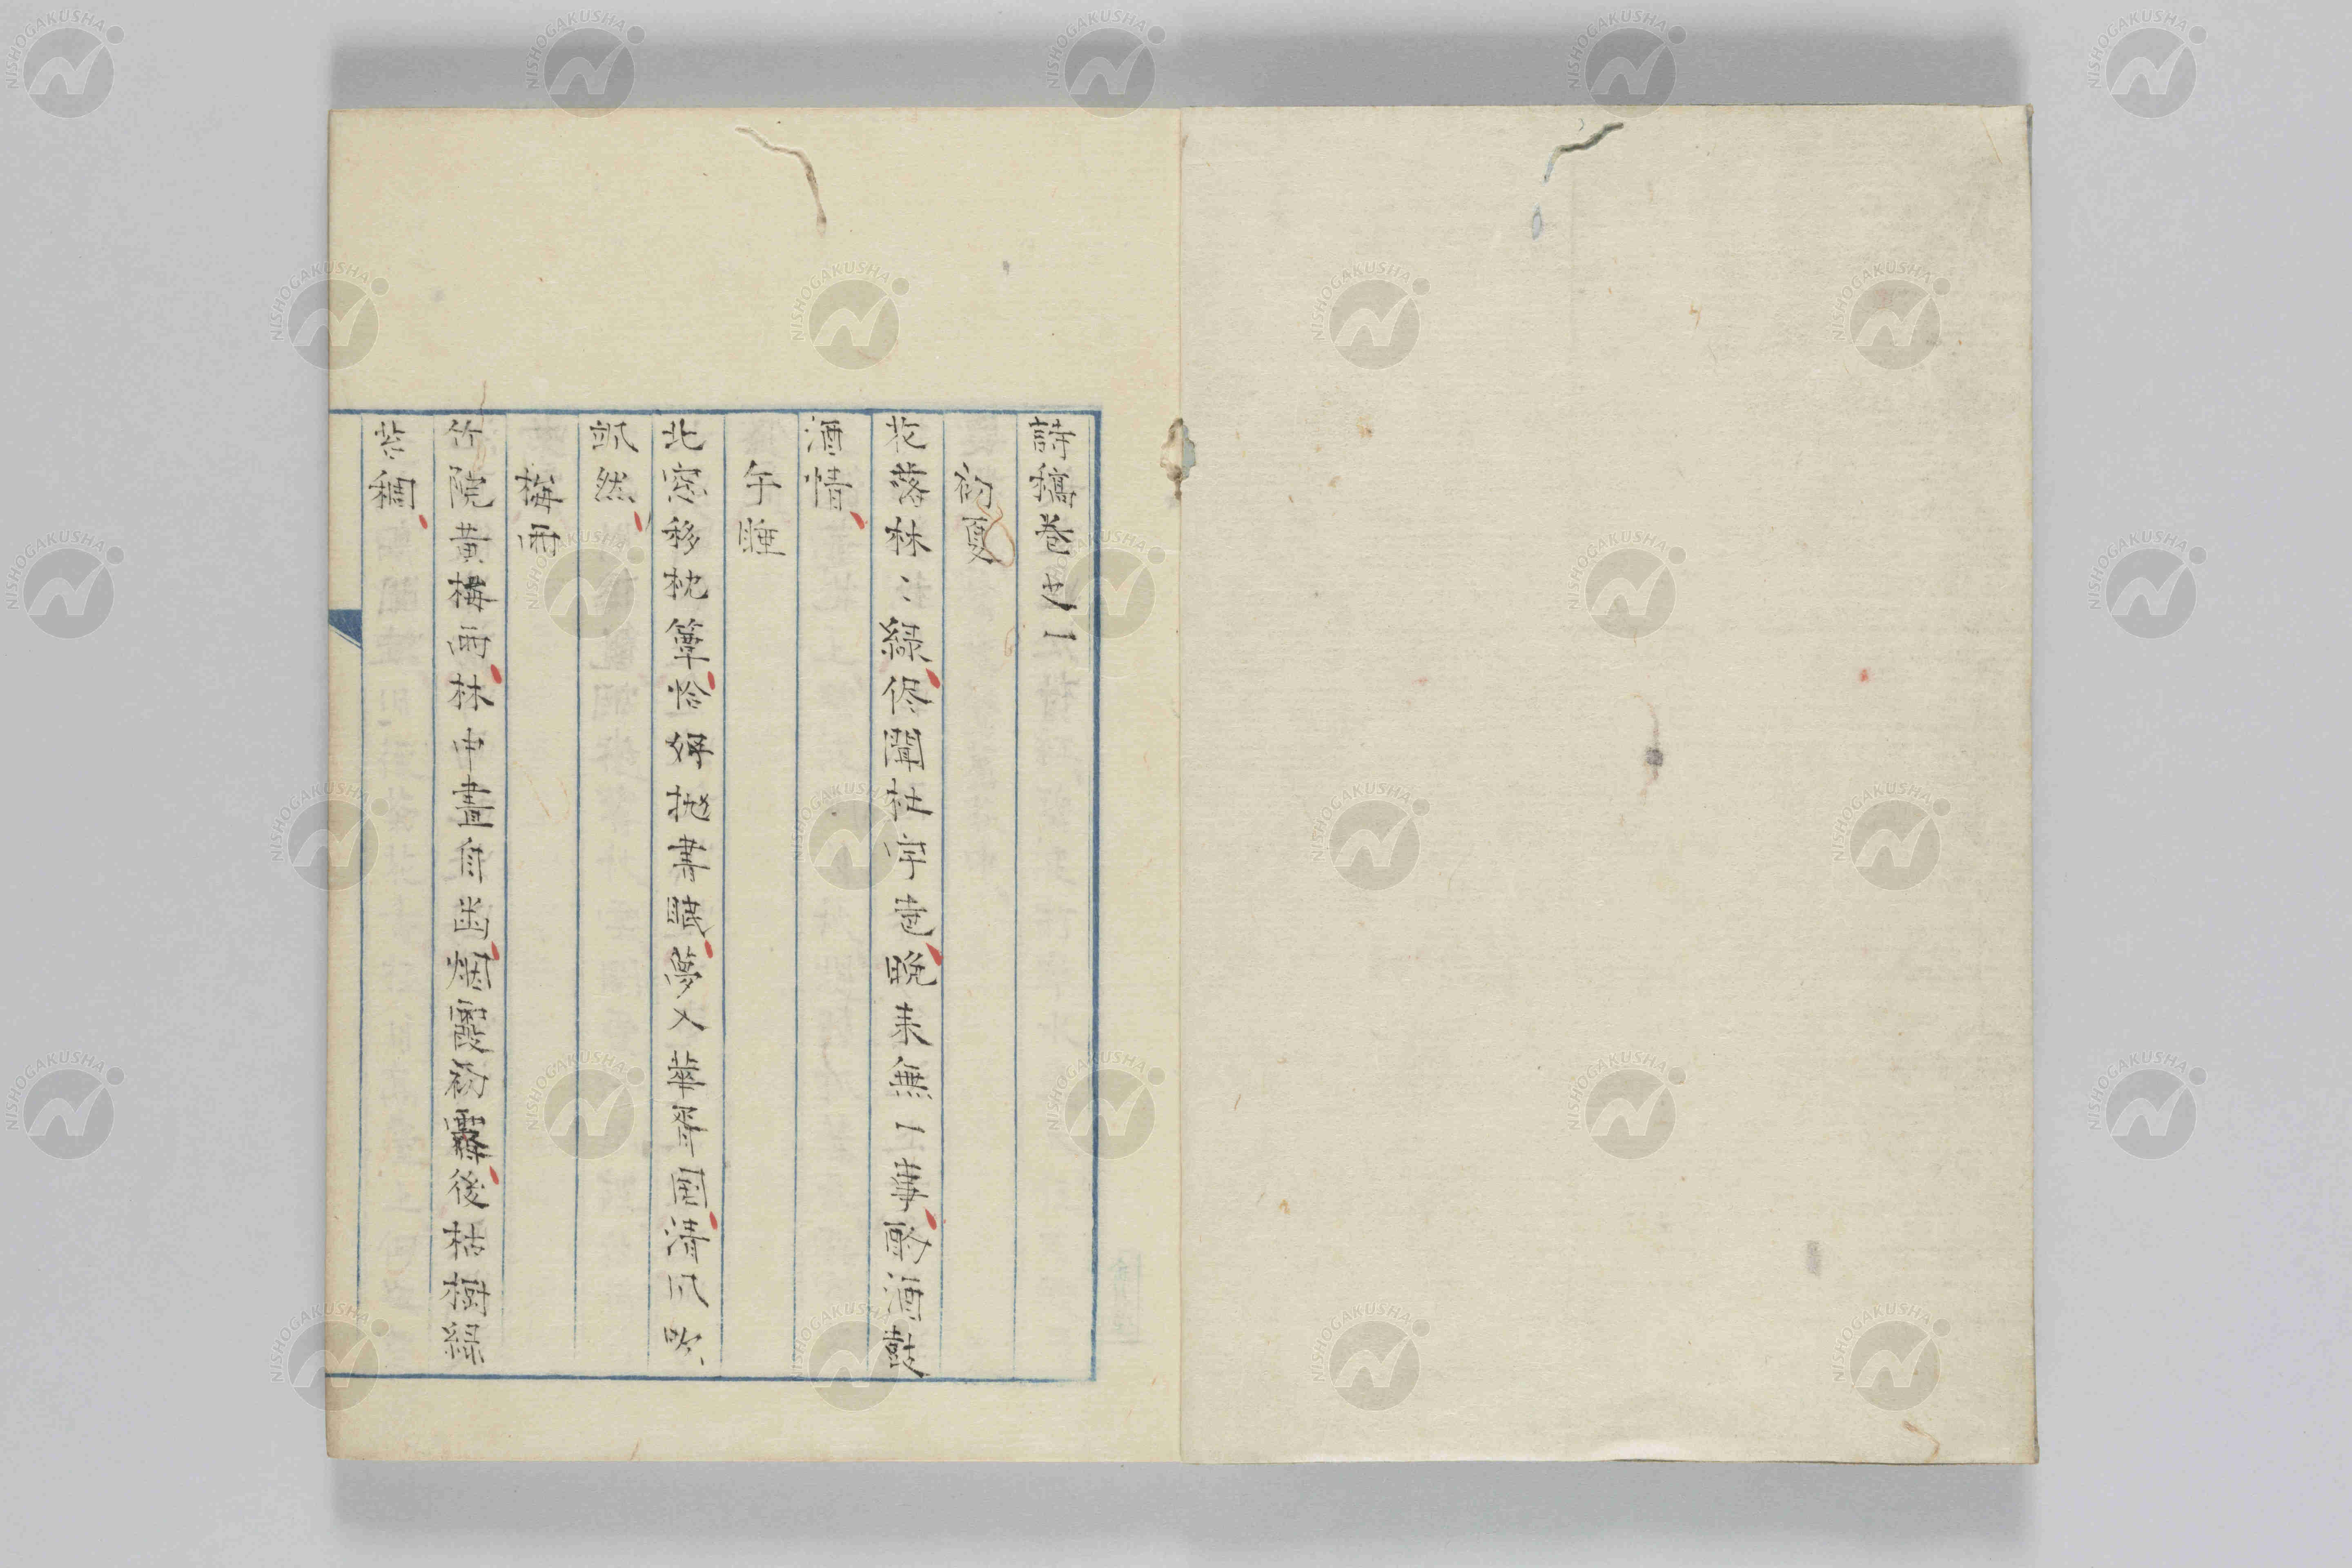 詩稿巻廿一
初夏
花落林〻緑倐聞杜宇声晩来無一事酌酒鼓
酒情
午睡
北窓移枕簟恰好抛書眠夢入華胥国清風吹
颯然
梅雨
竹院黄梅雨林中晝自幽烟霞初霽後枯樹緑
苔稠
NISHOGAKUSHA